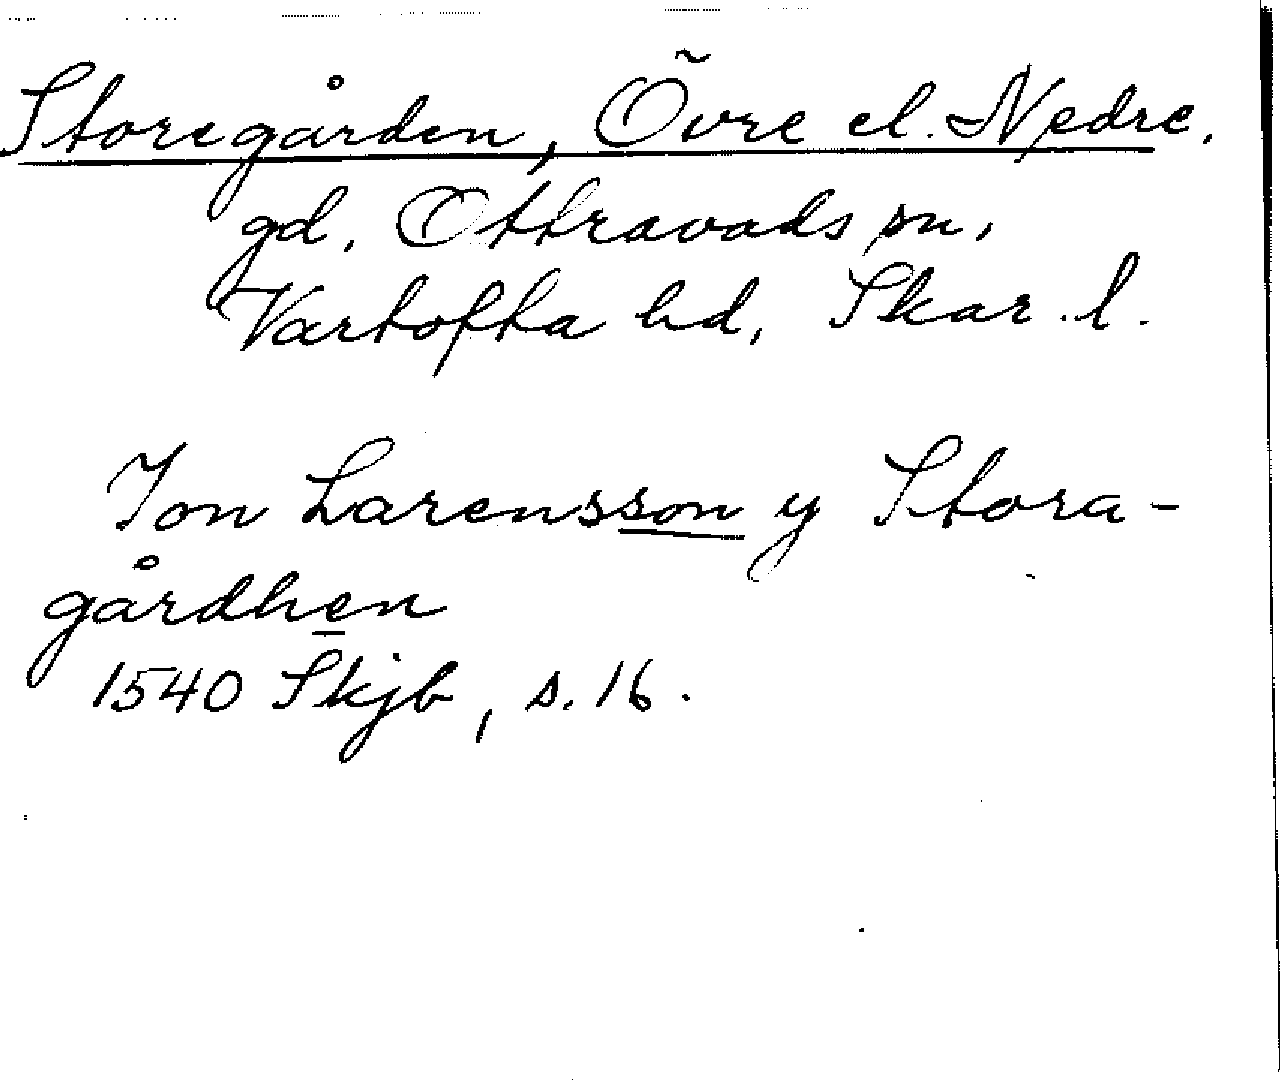 Storegården, Övre el. Nedre.
gd. Ottravads sn,
Vartofta hd, Skar. l.
Jon Larensson y Stora-
gårdhen
1540 Skjb, s. 16.